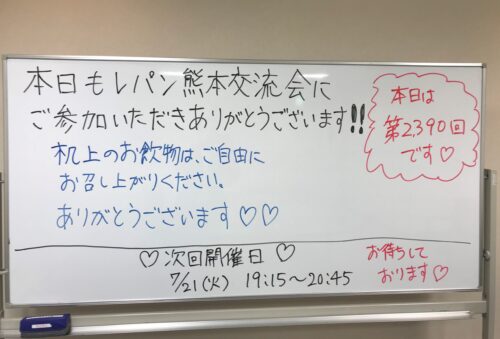 本日もレパン熊本交流会に
ご参加いただきありがとうございます!!
机上のお飲物は、ご自由に
お召し上がりください。
ありがとうございます♡♡
本日は
第2,390回
です♡
♡次回開催日♡
7/21(火) 19:15〜20:45
お待ちして
おります♡